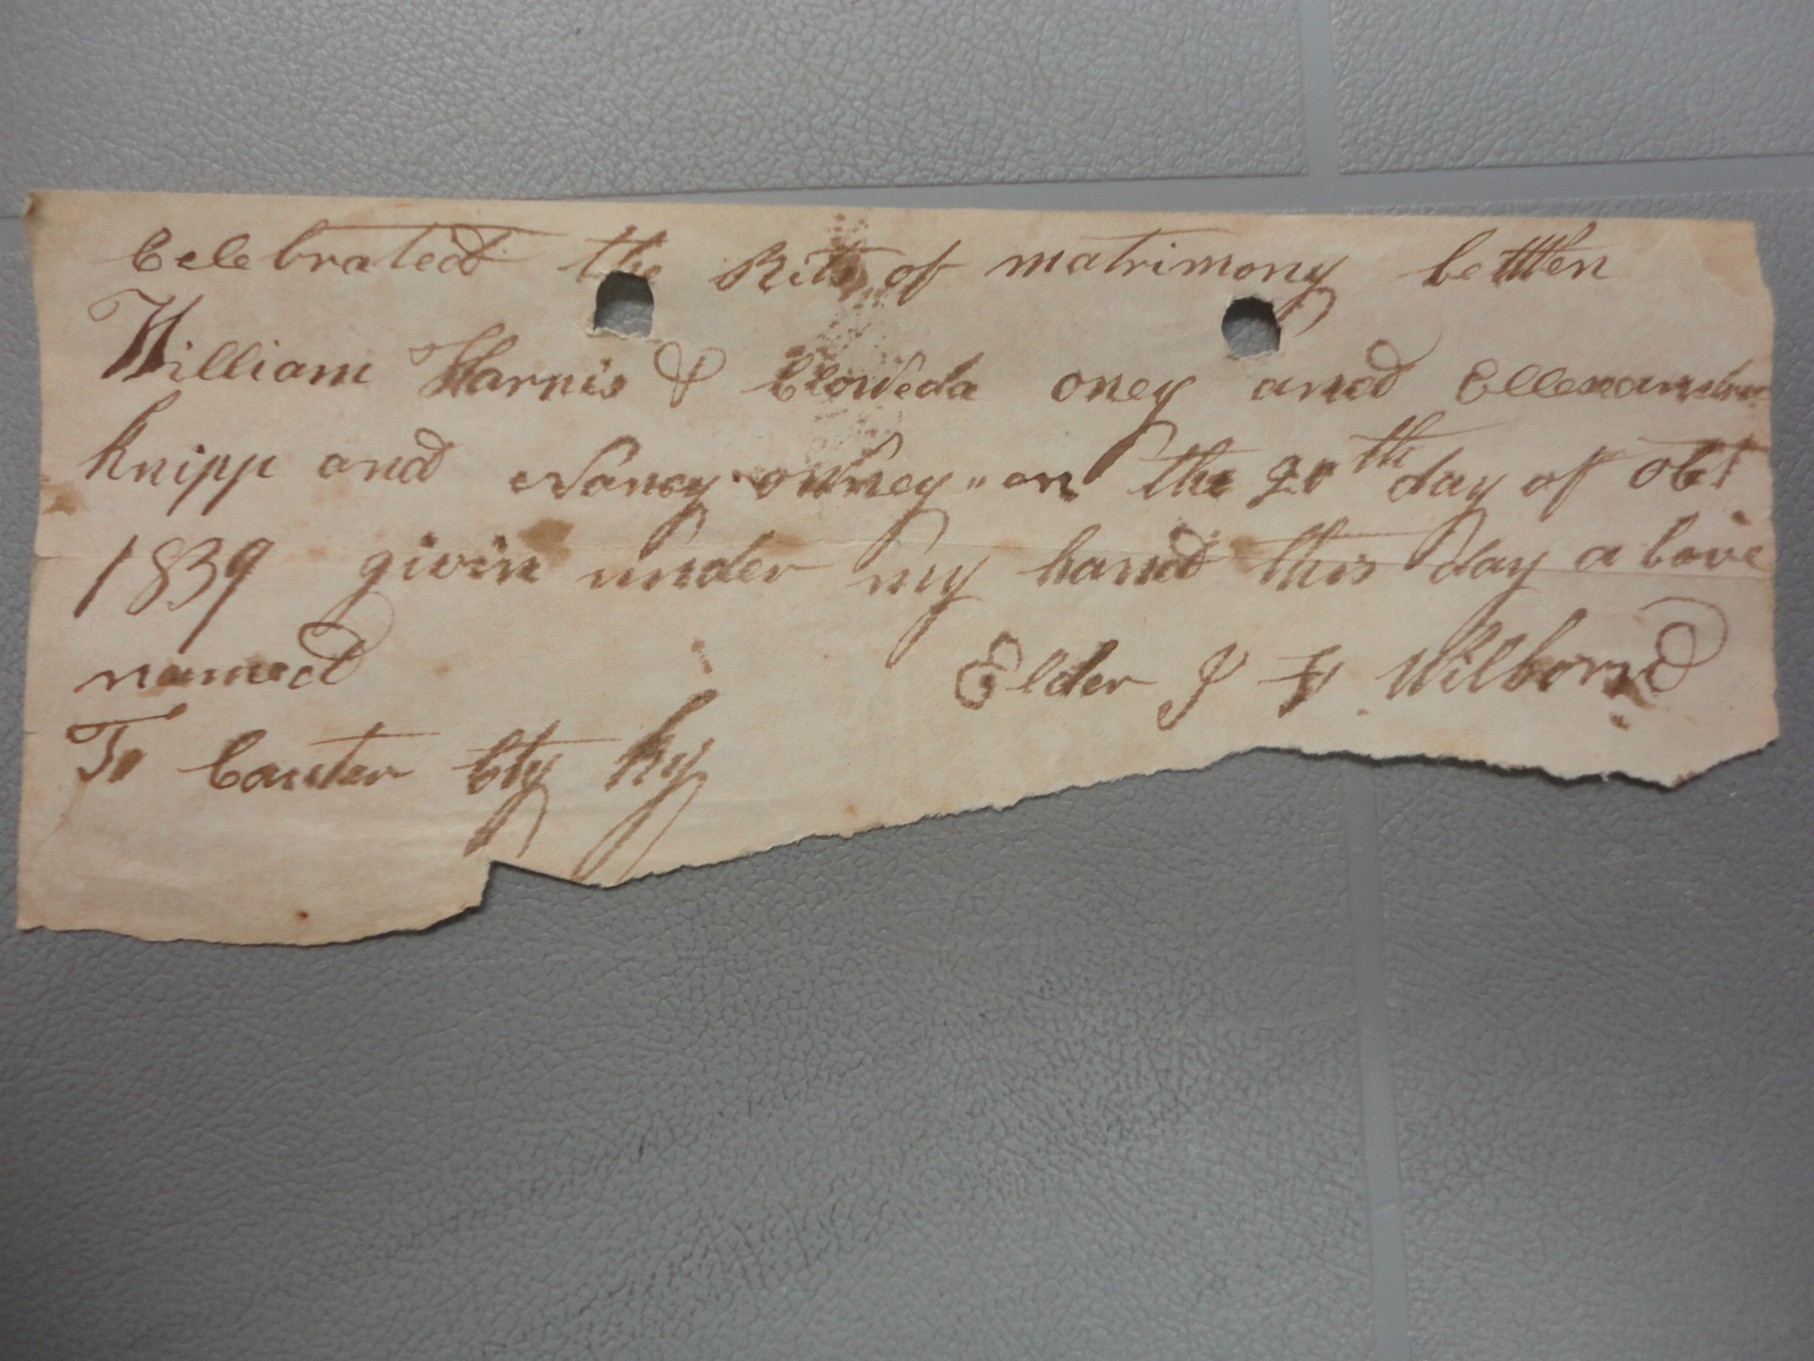 Celebrated the Rits of matrimony bettten
William Harris & Cloweda oney and Ellexander
Knipp and Nancy owney " on the 20th day of obt
1839 givin under my hand this day a bove
named Elder J F Wilbornd
To Carter Cty Ky